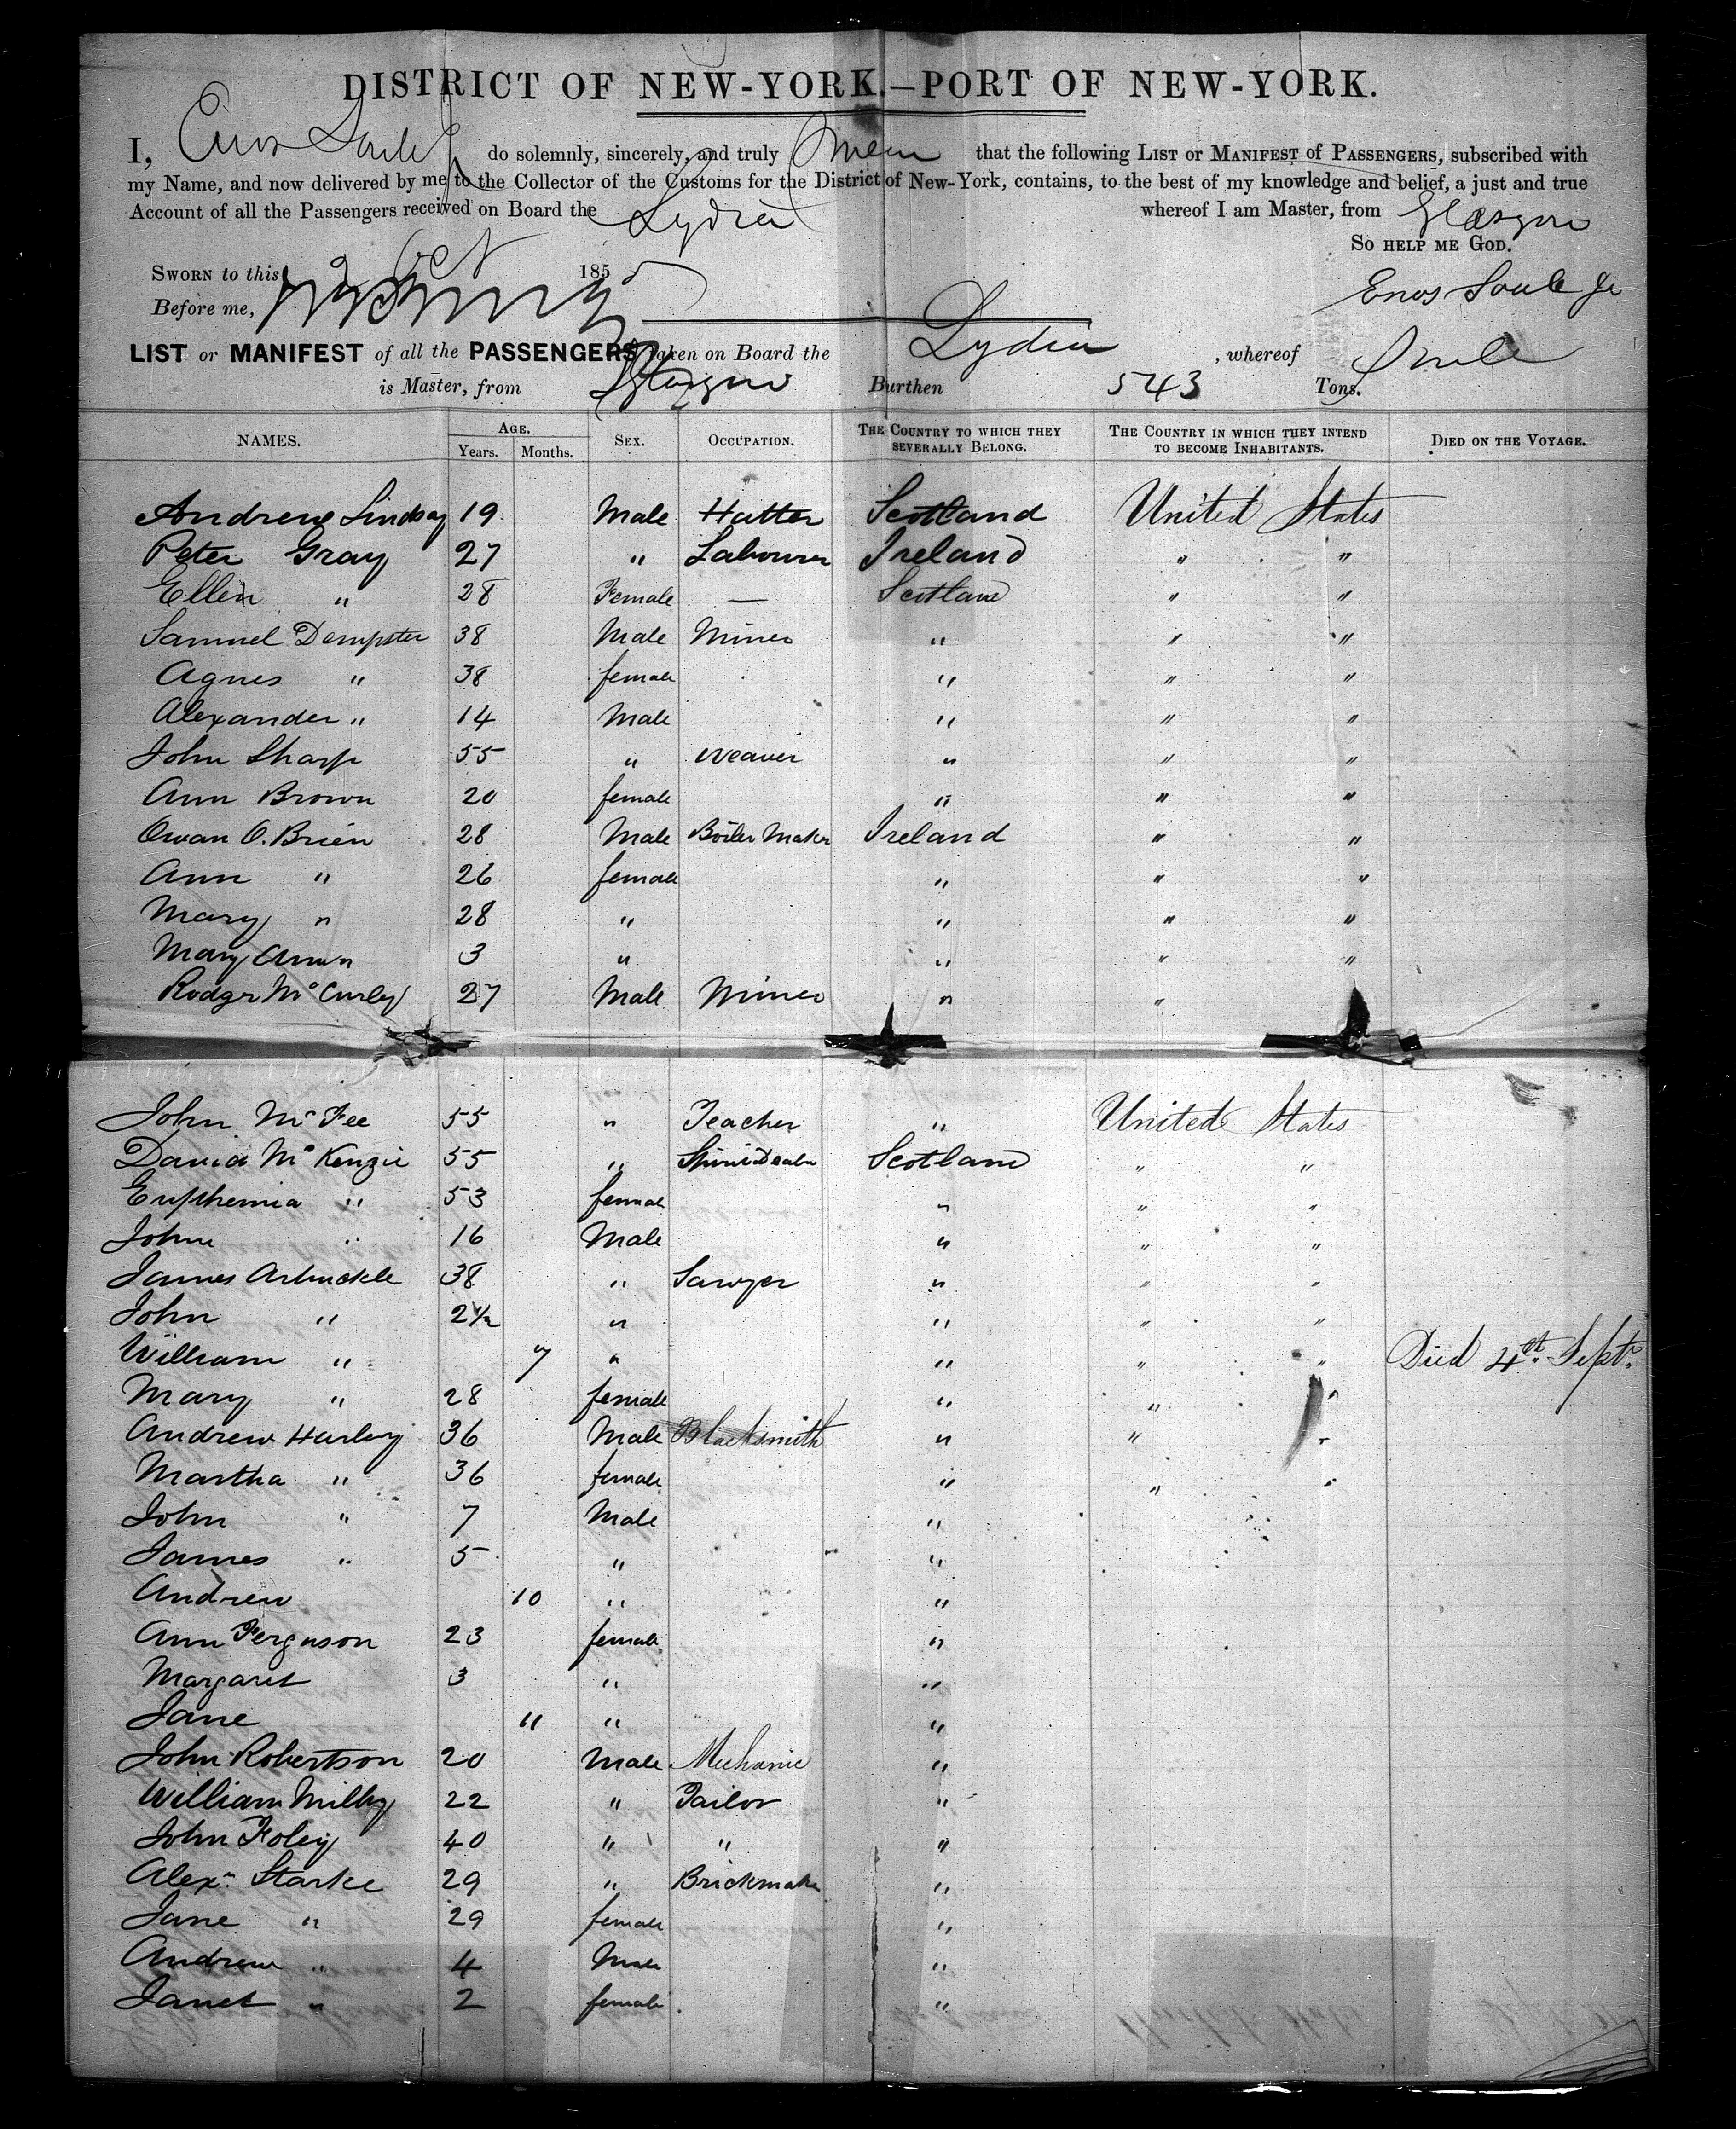 DISTRICT OF NEW-YORK.—PORT OF NEW-YORK.
I, Enos Soule Jr do solemnly, sincerely, and truly Swear that the following LIST or MANIFEST of PASSENGERS, subscribed with
my Name, and now delivered by me to the Collector of the Customs for the District of New-York, contains, to the best of my knowledge and belief, a just and true
Account of all the Passengers received on Board the Lydia whereof I am Master, from Glasgow
SO HELP ME GOD.
SWORN to this 2 Oct 185
Enos Soule Jr
Before me,
LIST or MANIFEST of all the PASSENGERS taken on Board the Lydia , whereof Soule
is Master, from Glasgow Burthen 543 Tons.
NAMES. AGE. SEX. OCCUPATION. THE COUNTRY TO WHICH THEY SEVERALLY BELONG. THE COUNTRY IN WHICH THEY INTEND TO BECOME INHABITANTS. DIED ON THE VOYAGE.
Years. Months.
Andrew Lindsay 19 Male Hatter Scotland United States
Peter Gray 27 " Labourer Ireland " "
Ellen " 28 Female — Scotland " "
Samuel Dempster 38 Male Miner " " "
Agnes " 38 female " " "
Alexander " 14 Male " " "
John Sharp 55 " Weaver " " "
Ann Brown 20 female " " "
Owan O.Brien 28 Male Boiler Maker Ireland " "
Ann " 26 female " " "
Mary " 28 " " " "
Mary Ann " 3 " " " "
Rodger McCurley 27 Male Miner " "
John McFee 55 " Teacher " United States
David McKenzie 55 " Spirit Dealer Scotland " "
Eupthemia " 53 female " " "
John " 16 Male " " "
James Arbuckle 38 " Sawyer " " "
John " 2½ " " " "
William " 7 " " " " Died 4th Sept.
Mary " 28 female " " "
Andrew Hurley 36 Male Blacksmith " " "
Martha " 36 female " " "
John " 7 Male "
James " 5 " "
Andrew 10 " "
Ann Ferguson 23 female "
Margaret 3 " "
Jane 11 " "
John Robertson 20 Male Mechanic "
William Milby 22 " Tailor "
John Foley 40 " " "
Alexr. Starke 29 " Brickmaker "
Jane " 29 female "
Andrew " 4 Male "
Janet " 2 female "